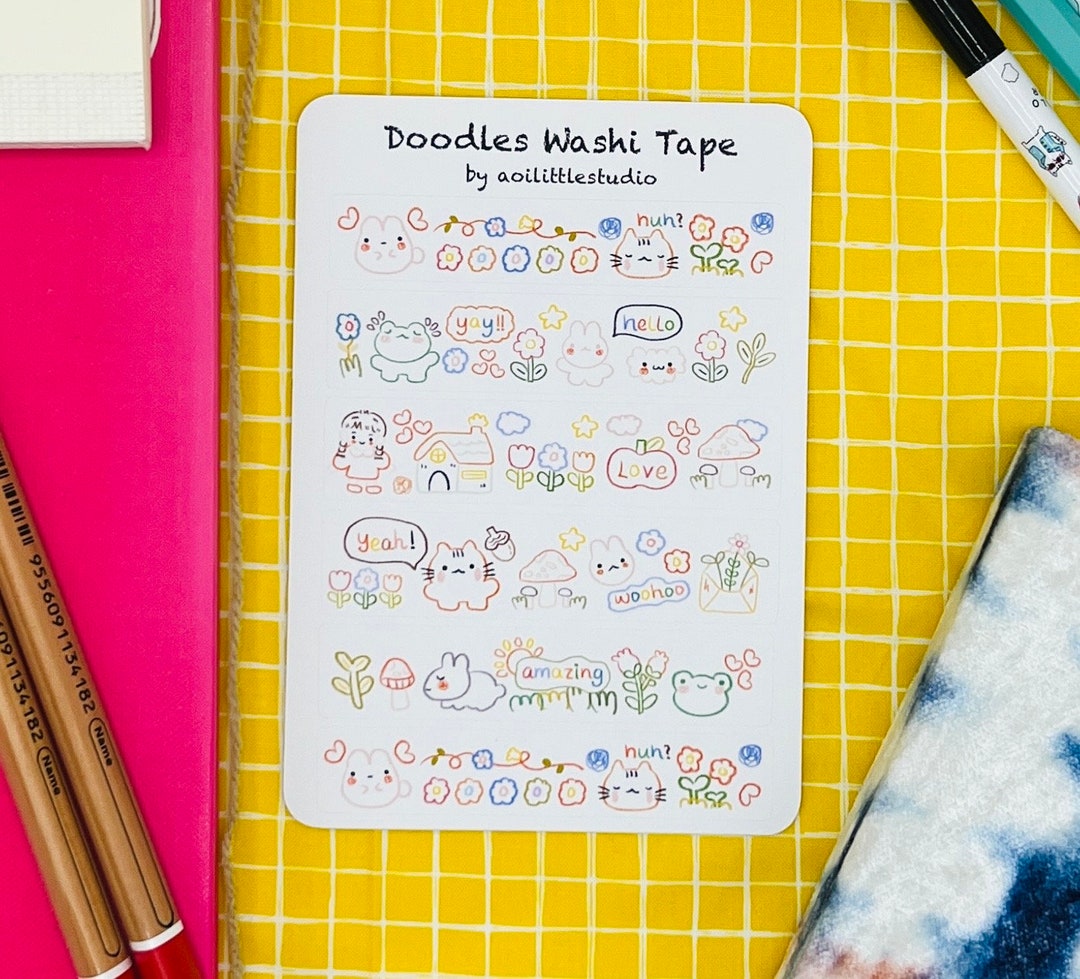 Doodles Washi Tape
by aoilittlestudio
huh?
yay!!
hello
Love
yeah!
woohoo
amazing
huh?
9556091134182
Name
6091134182
Name